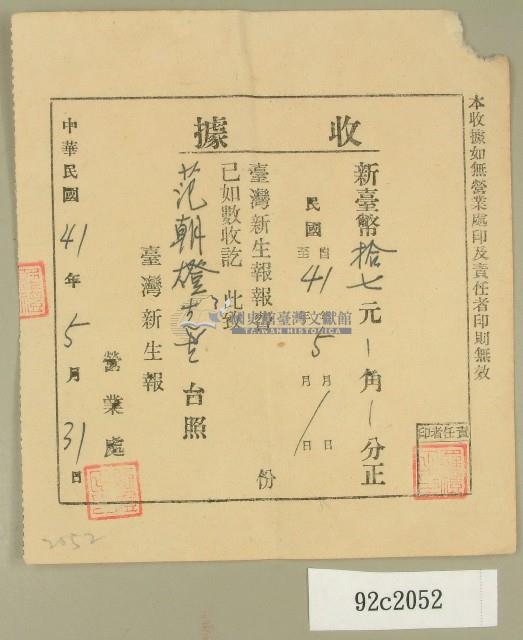 本收據如無營業處印及責任者印則無效
收據
新臺幣拾七元 角 分正
民國 自 至 41年 5月 日
臺灣新生報報費 份
已如數收訖 此致
范朝燈 台照
臺灣新生報
營業處
中華民國41年5月31日
責任者印
國史館臺灣文獻館
TAIWAN HISTORICA
2052
92c2052